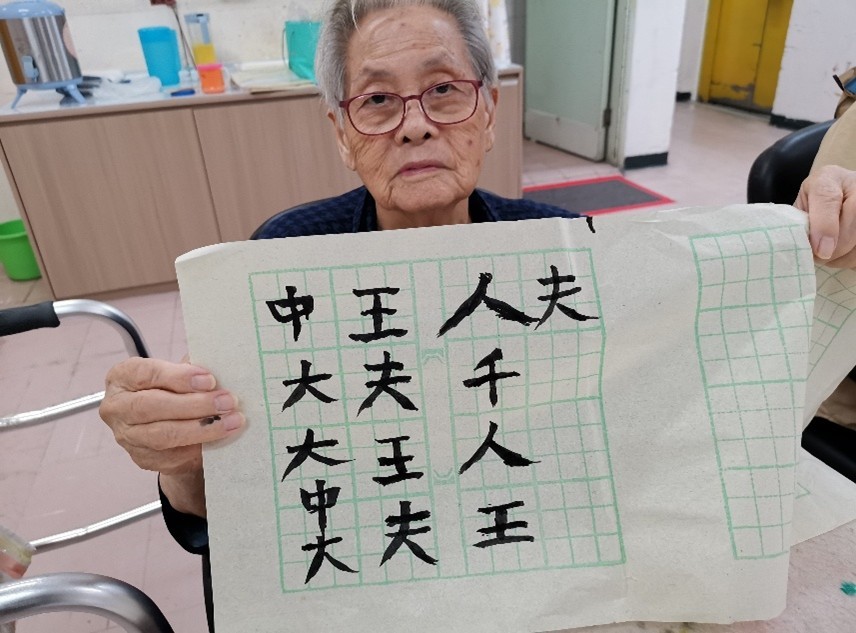 夫
人千人王
王夫王夫
中大大中大